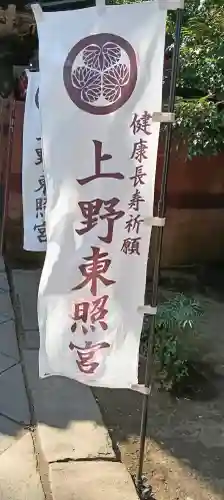 健康長寿祈願
上野東照宮
野東照宮